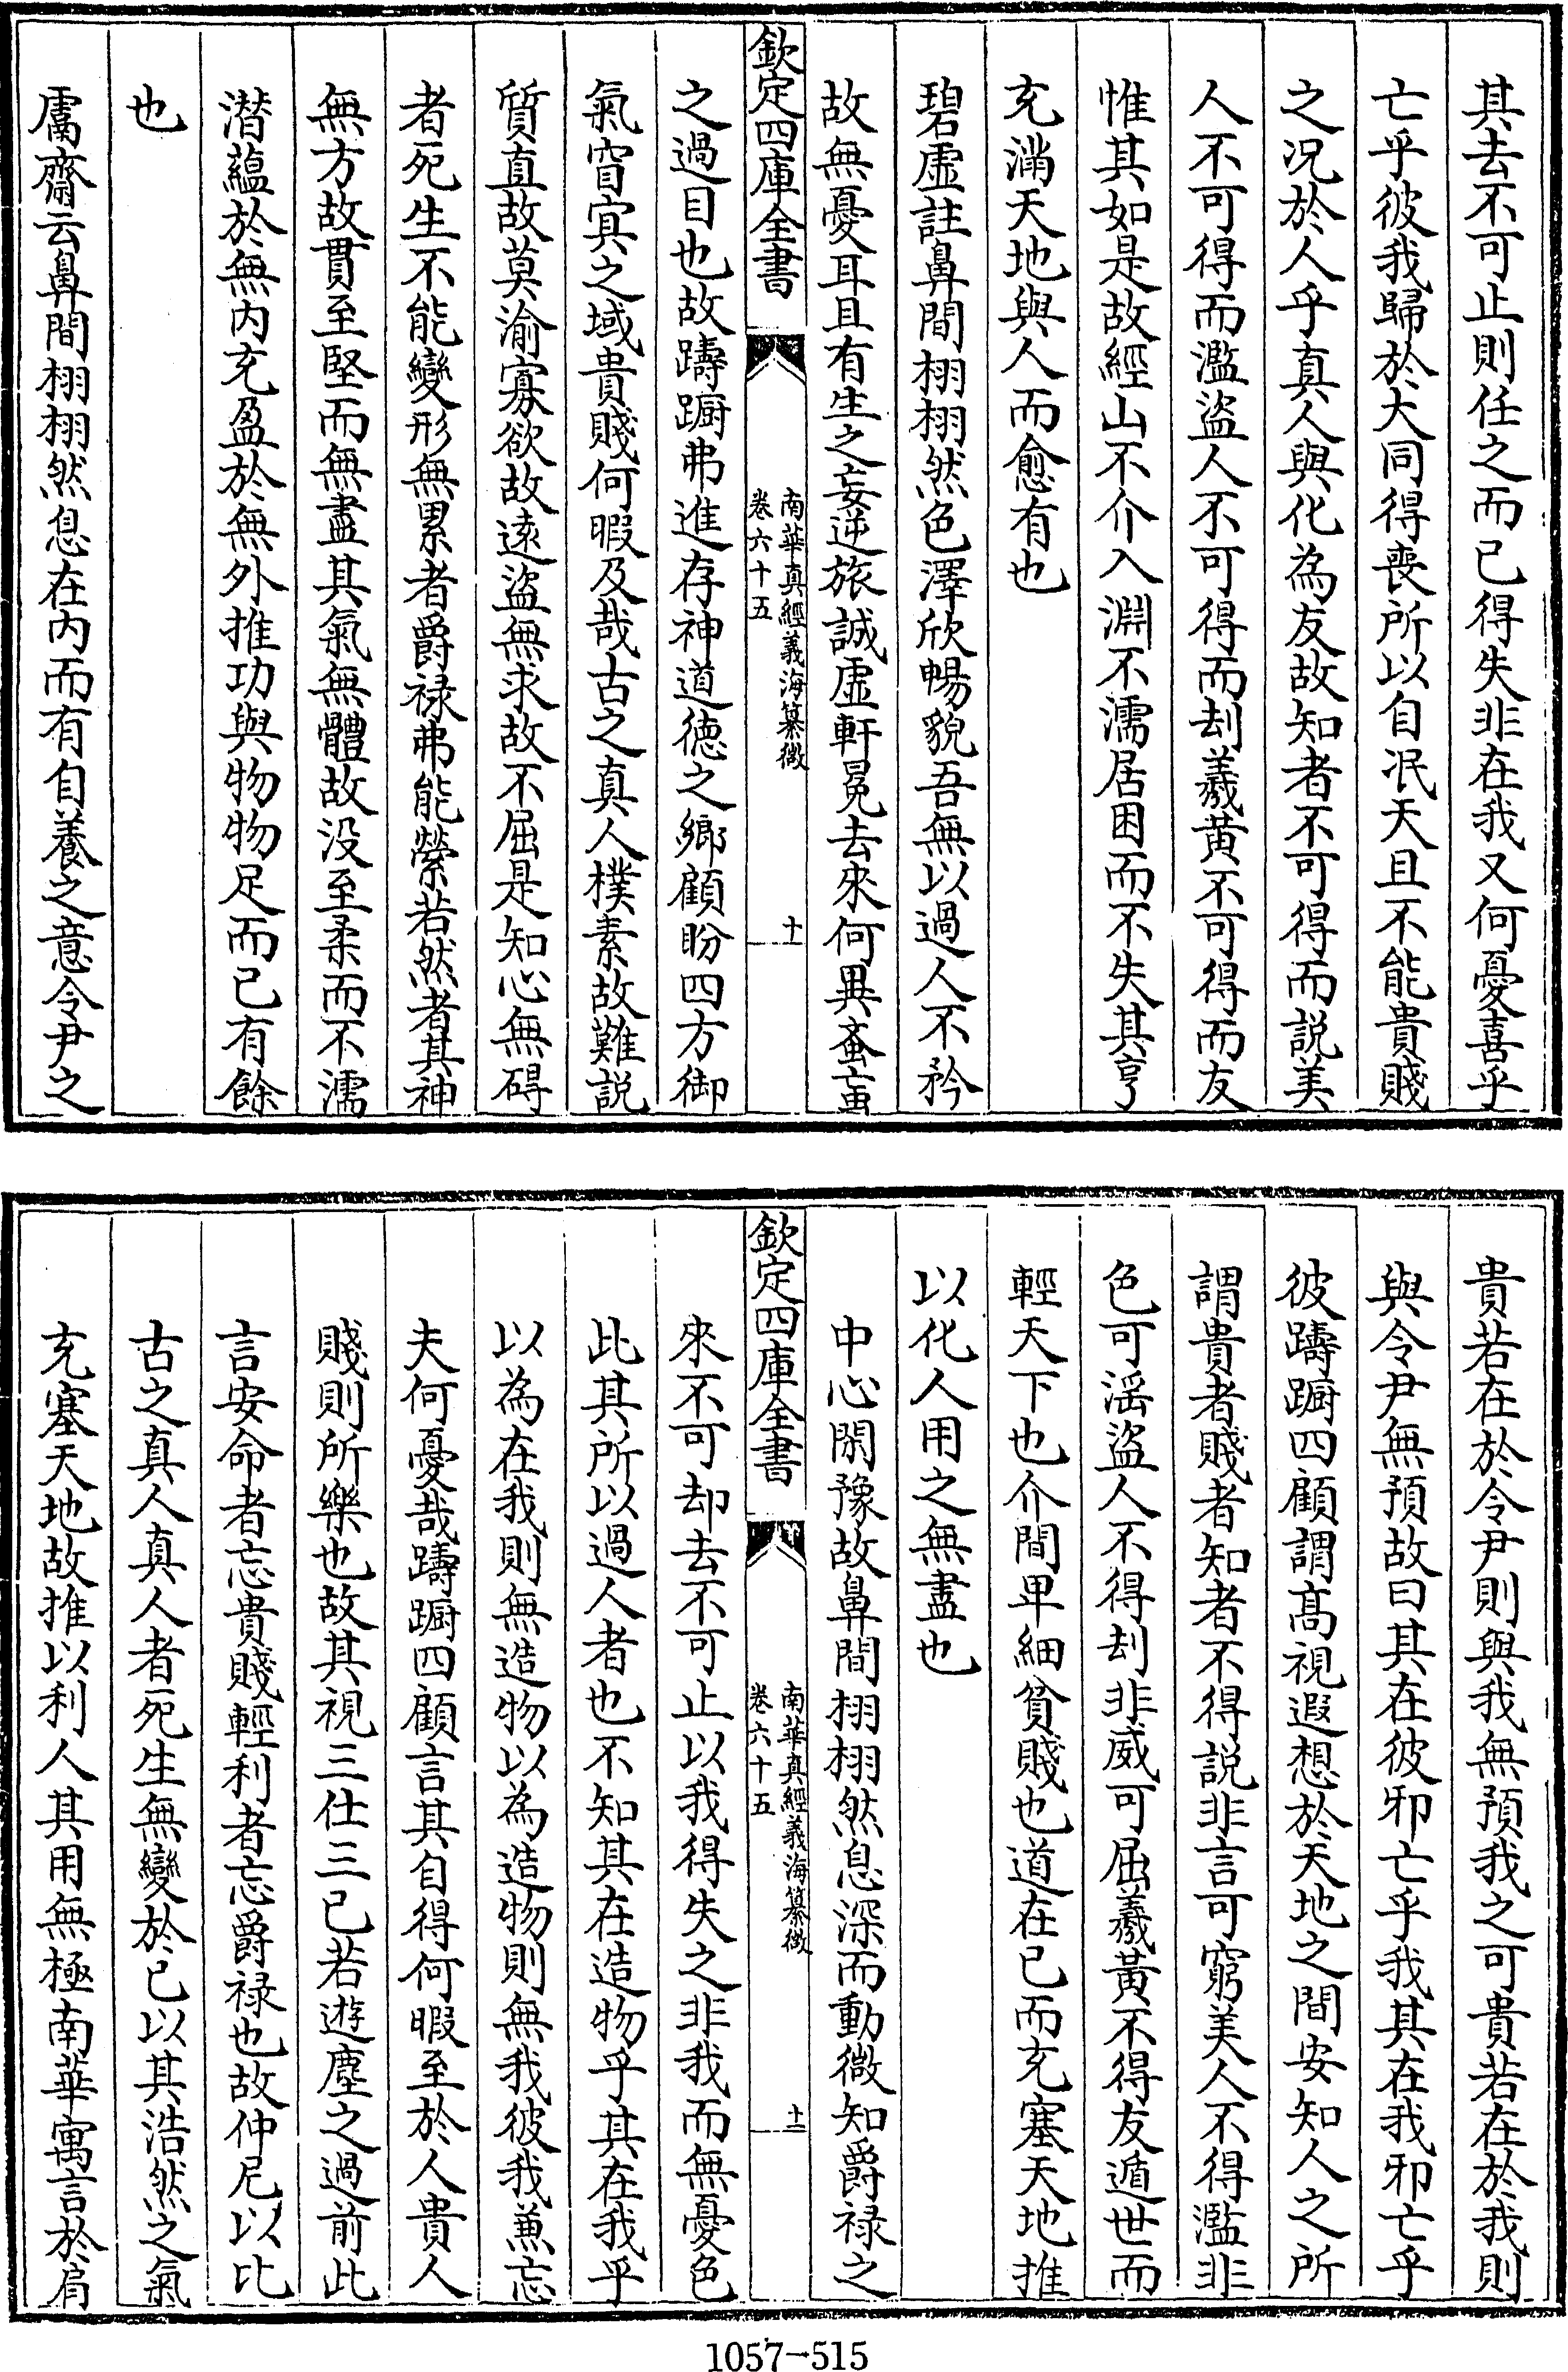 其去不可止則任之而已得失非在我又何憂喜乎
亡乎彼我歸於大同得喪所以自泯天且不能貴賤
之况於人乎真人與化為友故知者不可得而說美
人不可得而濫盜人不可得而刦羲黄不可得而友
惟其如是故經山不介入淵不濡居困而不失其亨
充滿天地與人而愈有也
碧虛註鼻間栩栩然色澤欣暢貌吾無以過人不矜
故無憂耳且有生之妄逆旅誠虛軒冕去來何異蚉䖟
欽定四庫全書
南華真經義海纂微
卷六十五
十
之過目也故躊躇弗進存神道德之鄉顧盼四方御
氣窅寘之域貴賤何暇及哉古之真人樸素故難說
質直故莫渝寡欲故遠盜無求故不屈是知心無碍
者死生不能變形無累者爵禄弗能縈若然者其神
無方故貫至堅而無盡其氣無體故没至柔而不濡
潛蘊於無内充盈於無外推功與物物足而已有餘
也
鬳齋云鼻間栩栩然息在内而有自養之意令尹之
貴若在於令尹則與我無預我之可貴若在於我則
與令尹無預故曰其在彼邪亡乎我其在我邪亡乎
彼躊躇四顧謂髙視遐想於天地之間安知人之所
謂貴者賤者知者不得說非言可窮美人不得濫非
色可滛盜人不得刦非威可屈羲黄不得友遁世而
輕天下也介間卑細貧賤也道在已而充塞天地推
以化人用之無盡也
中心閒豫故鼻間栩栩然息深而動微知爵禄之
欽定四庫全書
南華真經義海纂微
卷六十五
十一
來不可却去不可止以我得失之非我而無憂色
此其所以過人者也不知其在造物乎其在我乎
以為在我則無造物以為造物則無我彼我兼忘
夫何憂哉躊躇四顧言其自得何暇至於人貴人
賤則所樂也故其視三仕三已若遊塵之過前此
言安命者忘貴賤輕利者忘爵禄也故仲尼以比
古之真人真人者死生無變於已以其浩然之氣
充塞天地故推以利人其用無極南華寓言於肩
1057-515